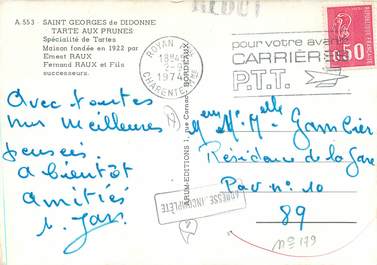 A 553 - SAINT GEORGES de DIDONNE
TARTE AUX PRUNES
Spécialité de Tartes
Maison fondée en 1922 par
Ernest RAUX
Fernand RAUX et Fils
successeurs.
Avec toutes
nos meilleures
pensées
à bientôt
amitiés
ARJM-EDITIONS 1, rue Cornac - BORDEAUX
ROYAN
18H45
2-9
1974
CHARENTE
REBUT
pour votre avenir
CARRIÈRES
P.T.T.
0,50
Mr Melle Gambier
Résidence de la Gare
Pav n° 10
89
ADRESSE INCOMPLÈTE
N° 179